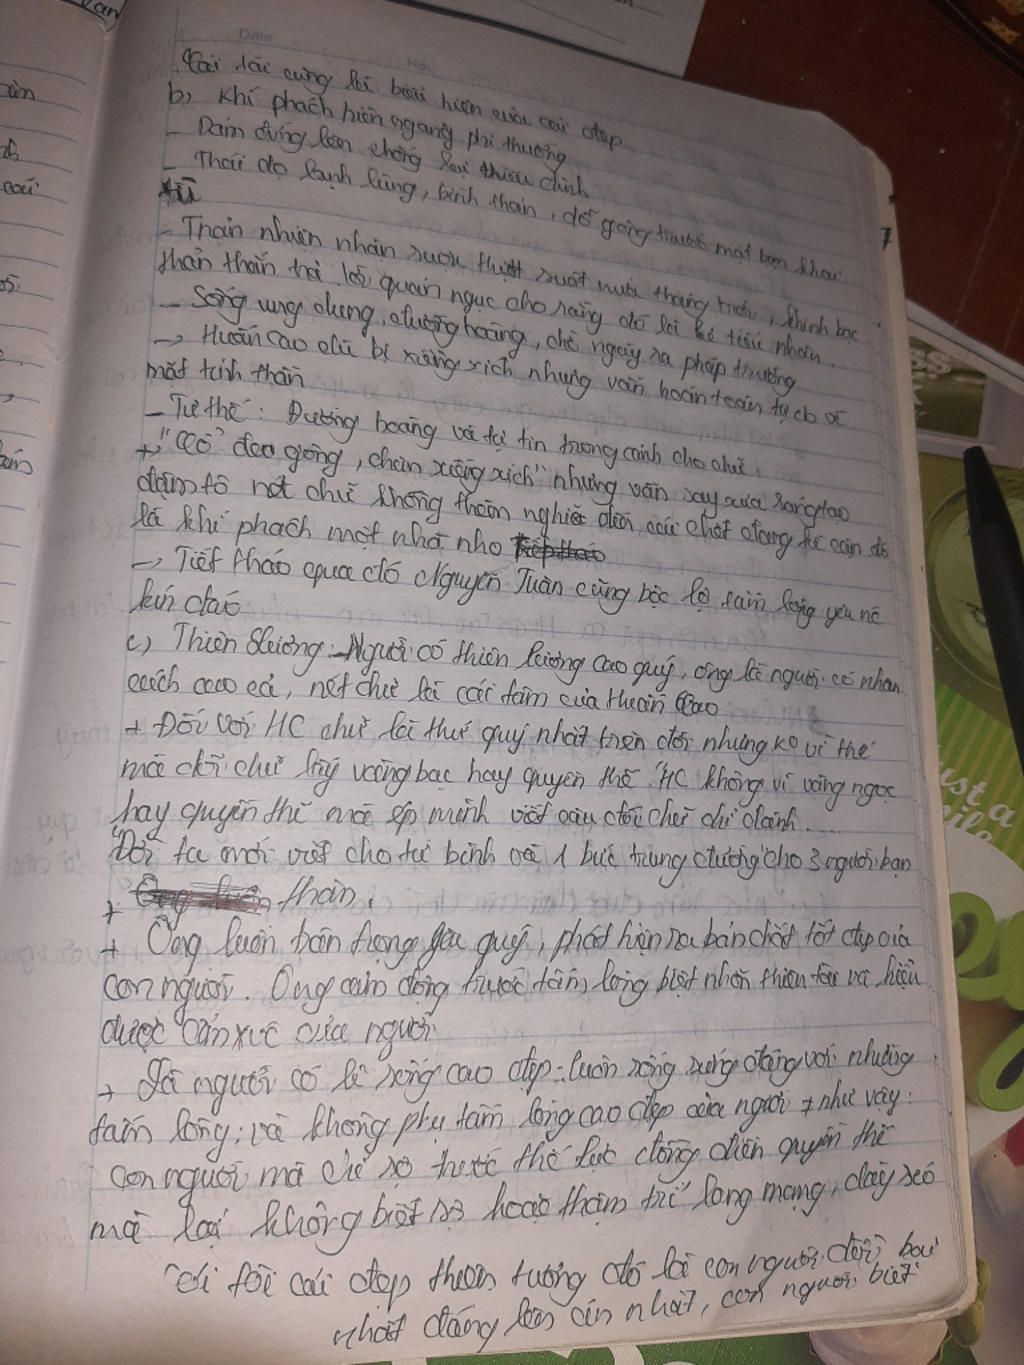 Date
No.
Cái tài cũng là biểu hiện của cái đẹp
b, Khí phách hiên ngang phi thường
- Dám đứng lên chống lại triều đình
- Thái độ lạnh lùng, bình thản, dỗ gông trước mặt bọn
- Thản nhiên nhận rượu thịt suốt nửa tháng trời, khinh bạc
thản thắn trả lời quản ngục cho rằng đó là kẻ tiểu nhân.
- Sống ung dung, đường hoàng, chờ ngày ra pháp trường
-> Huấn Cao dù bị xiềng xích nhưng vẫn hoàn toàn tự do về
mặt tinh thần
- Tư thế: Đường hoàng và tự tin trong cảnh cho chữ.
+, "Cổ đeo gông, chân xiềng xích" nhưng vẫn say xưa sáng tạo
dậm tô nét chữ không thèm nghĩ đến cái chết đang kề cận đó
là khí phách một nhà nho
-> Tiết tháo qua đó Nguyễn Tuân cũng bộc lộ tấm lòng yêu nc
kín đáo
c) Thiên lương: - Người có thiên lương cao quý, ông là người có nhân
cách cao cả, nét chữ là cái tâm của Huấn Cao
+ Đối với HC chữ là thứ quý nhất trên đời nhưng ko vì thế
mà đổi chữ lấy vàng bạc hay quyền thế. "HC không vì vàng ngọc
hay quyền thế mà ép mình viết câu đối chữ
Đời ta mới viết cho tứ bình và 1 bức trung đường cho 3 người bạn
+ thân.
+ Ông luôn trân trọng yêu quý, phát hiện ra bản chất tốt đẹp của
con người. Ông cảm động trước tấm lòng biệt nhỡn thiên tài và hiểu
được cảm xúc của người
+ Là người có lẽ sống cao đẹp: luôn sống xứng đáng với những
tấm lòng; và không phụ tấm lòng cao đẹp của người ≠ như vậy:
con người mà chỉ sợ trước thế lực đồng tiền quyền thế
mà lại không biết sợ hoặc thậm trí lang mạng, dày xéo
cái tài cái đẹp thiên lương đó là con người
nhất đáng lên án nhất, con người biết